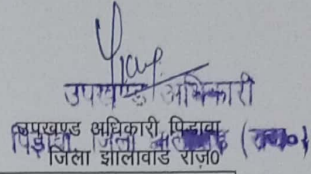 उपखण्ड अधिकारी
उपखण्ड अधिकारी पिड़ावा
पिड़ावा जिला (राज०)
जिला झालावाड राज़0